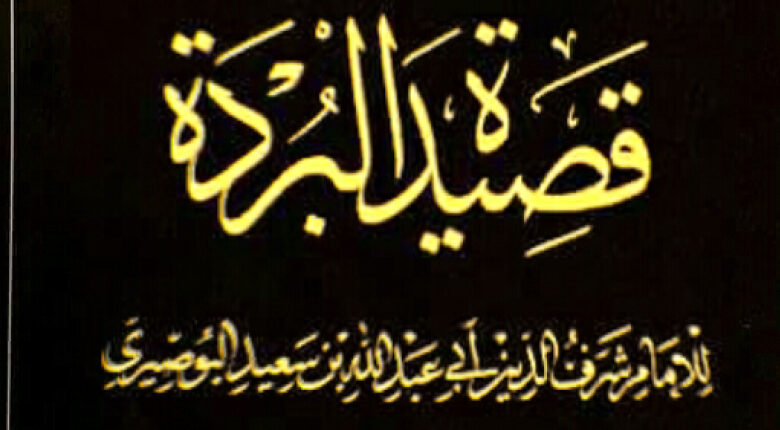 قصيدة البُردة
للإمام شرف الدين أبي عبد الله بن سعيد البوصيري